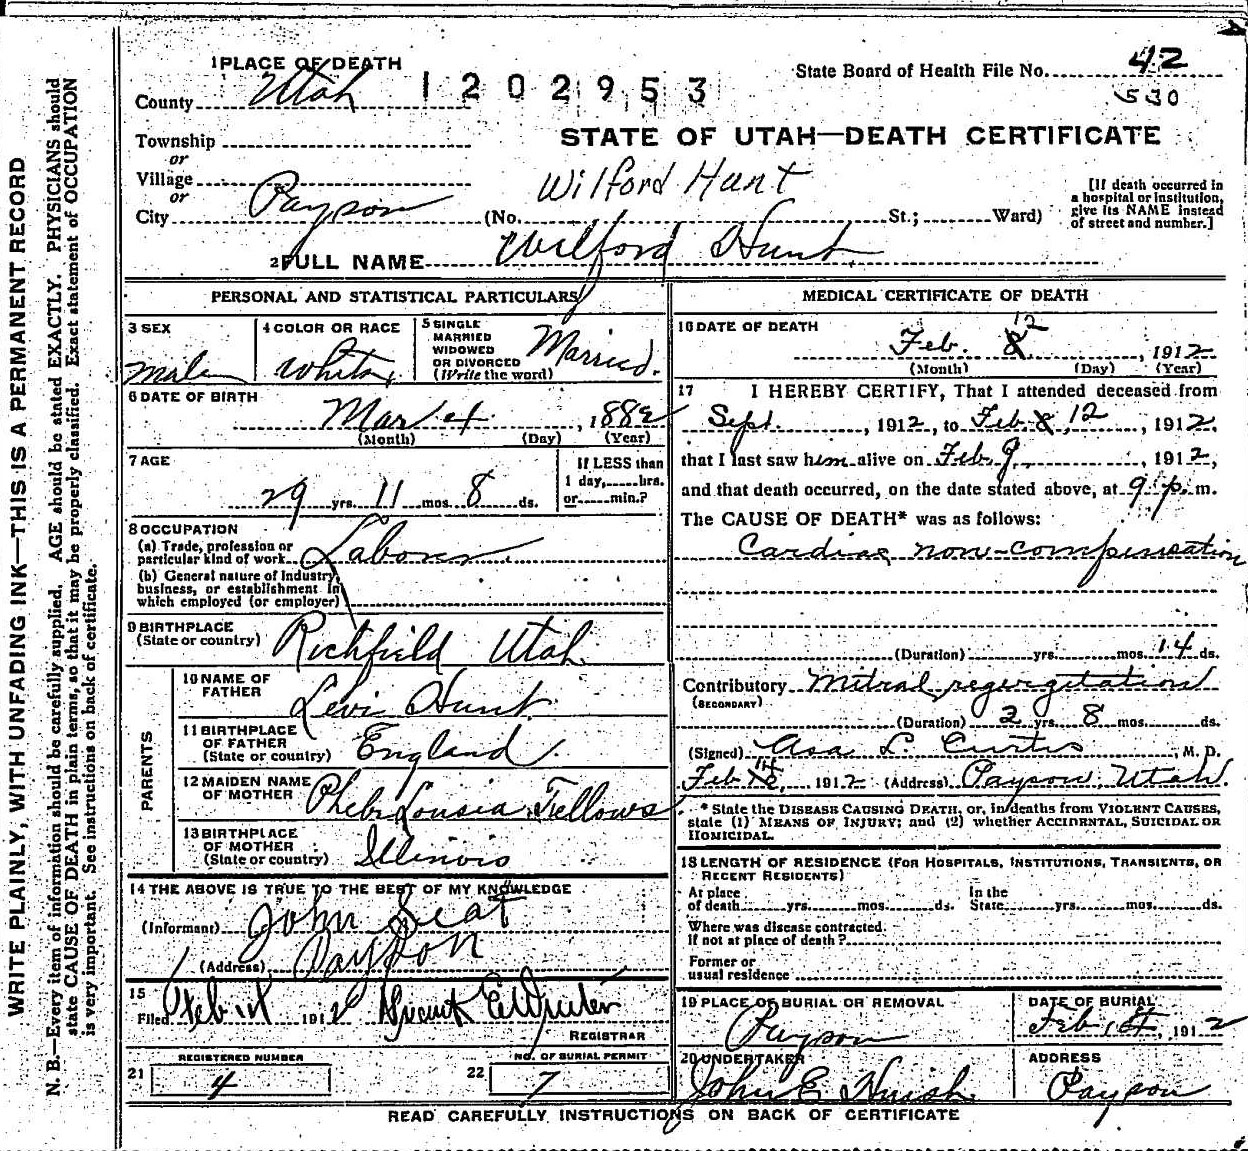 WRITE PLAINLY, WITH UNFADING INK—THIS IS A PERMANENT RECORD
N. B.—Every item of information should be carefully supplied. AGE should be stated EXACTLY. PHYSICIANS should
state CAUSE OF DEATH in plain terms, so that it may be properly classified. Exact statement of OCCUPATION
is very important. See instructions on back of certificate.
1 PLACE OF DEATH
County Utah
1202953
State Board of Health File No. 42
530
Township
or
Village
or
City Payson
STATE OF UTAH—DEATH CERTIFICATE
Wilford Hunt
(No. St.; Ward)
[If death occurred in
a hospital or institution,
give its NAME instead
of street and number.]
2 FULL NAME Wilford Hunt
PERSONAL AND STATISTICAL PARTICULARS
3 SEX
male
4 COLOR OR RACE
White
5 SINGLE
MARRIED
WIDOWED
OR DIVORCED
(Write the word)
Married.
6 DATE OF BIRTH
Mar 4, 1882
(Month) (Day) (Year)
7 AGE
29 yrs. 11 mos. 8 ds.
If LESS than
1 day, hrs.
or min.?
8 OCCUPATION
(a) Trade, profession or
particular kind of work Laborer
(b) General nature of industry,
business, or establishment in
which employed (or employer)
9 BIRTHPLACE
(State or country) Richfield Utah.
PARENTS
10 NAME OF
FATHER Levi Hunt
11 BIRTHPLACE
OF FATHER
(State or country) England
12 MAIDEN NAME
OF MOTHER Phebe Lousia Fellows
13 BIRTHPLACE
OF MOTHER
(State or country) Illinois
14 THE ABOVE IS TRUE TO THE BEST OF MY KNOWLEDGE
(Informant) John
(Address) Payson
15
Filed Feb 14 1912
REGISTRAR
REGISTERED NUMBER
21 4
NO. OF BURIAL PERMIT
22 7
MEDICAL CERTIFICATE OF DEATH
16 DATE OF DEATH
Feb. 8 12, 1912
(Month) (Day) (Year)
17 I HEREBY CERTIFY, That I attended deceased from
Sept. , 1912, to Feb. 8, 12, 1912,
that I last saw him alive on Feb. 9, 1912,
and that death occurred, on the date stated above, at 9 p. m.
The CAUSE OF DEATH* was as follows:
Cardiac non-compensation
(Duration) yrs. mos. 14 ds.
Contributory Mitral regergetation
(SECONDARY)
(Duration) 2 yrs. 8 mos. ds.
(Signed) Asa L. Curtis M. D.
Feb 14, 1912 (Address) Payson, Utah.
* State the DISEASE CAUSING DEATH, or, in deaths from VIOLENT CAUSES,
state (1) MEANS OF INJURY; and (2) whether ACCIDENTAL, SUICIDAL OR
HOMICIDAL.
18 LENGTH OF RESIDENCE (FOR HOSPITALS, INSTITUTIONS, TRANSIENTS, OR
RECENT RESIDENTS)
At place
of death yrs. mos. ds.
In the
State yrs. mos. ds.
Where was disease contracted.
If not at place of death?
Former or
usual residence
19 PLACE OF BURIAL OR REMOVAL
Payson
DATE OF BURIAL
Feb. 14, 1912
20 UNDERTAKER
John E. Huish
ADDRESS
Payson
READ CAREFULLY INSTRUCTIONS ON BACK OF CERTIFICATE